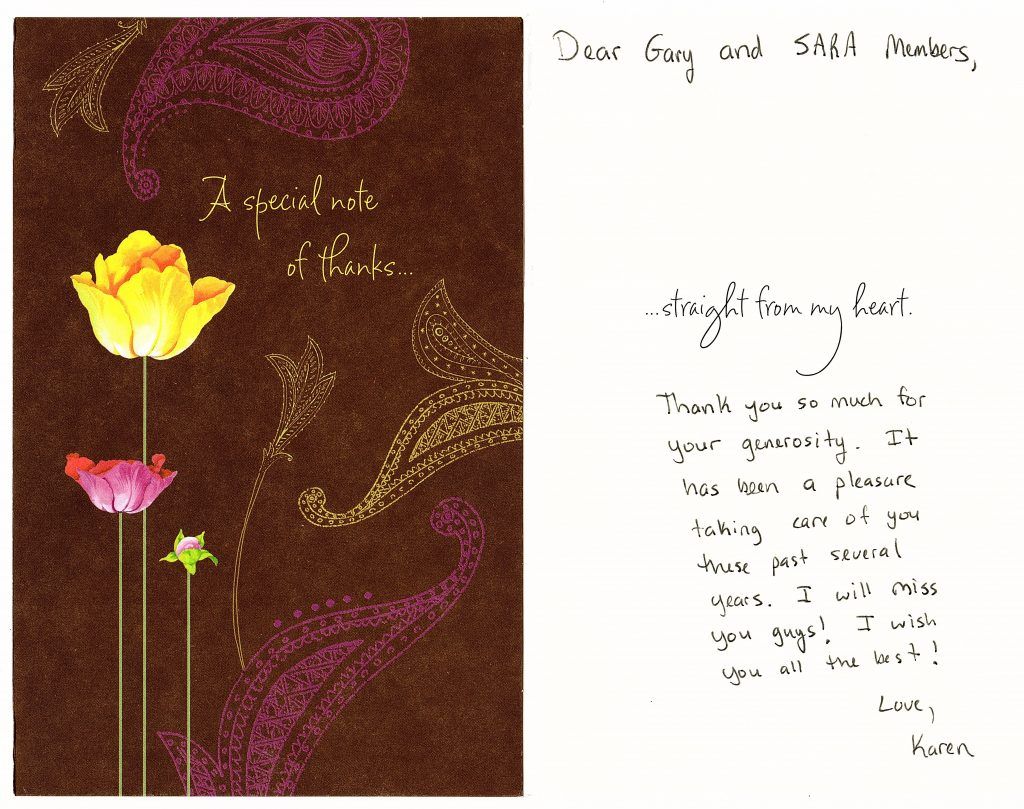 A special note
of thanks...
Dear Gary and SARA Members,
...straight from my heart.
Thank you so much for
your generosity. It
has been a pleasure
taking care of you
these past several
years. I will miss
you guys! I wish
you all the best!
Love,
Karen